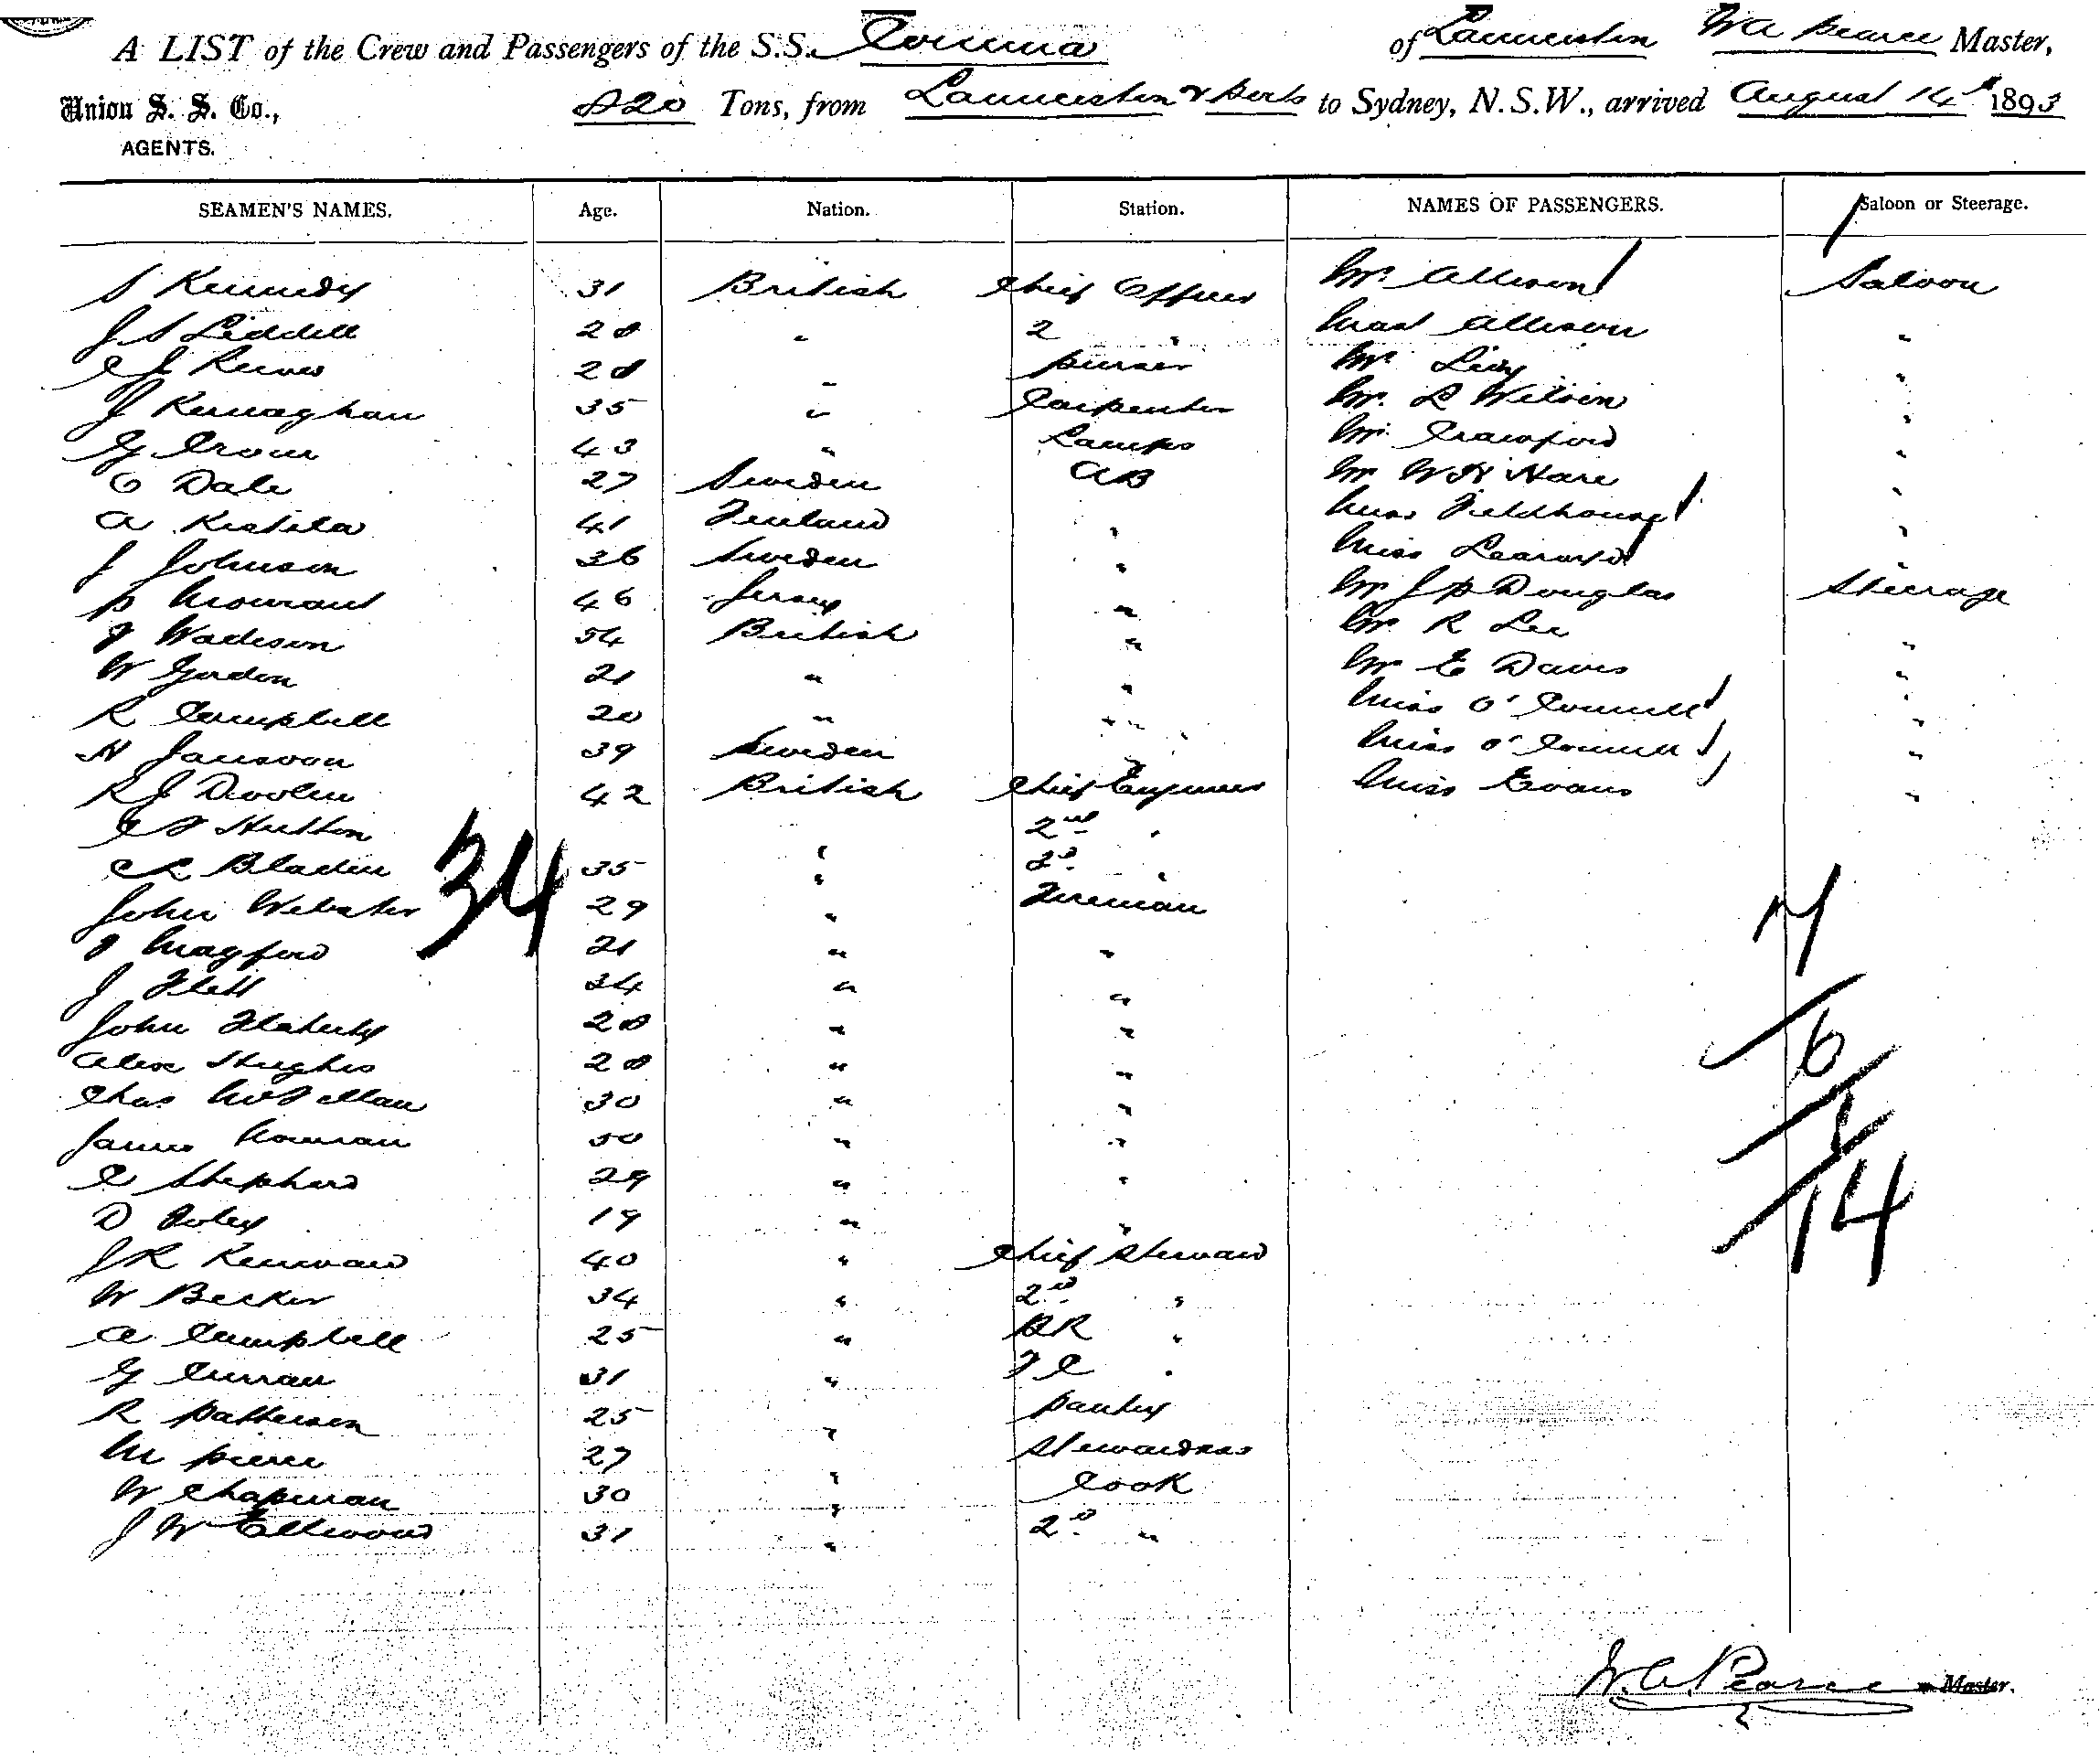 A LIST of the Crew and Passengers of the S.S. Corinna of Launceston W A Pearce Master,
Union S. S. Co., 820 Tons, from Launceston & Ports to Sydney, N.S.W., arrived August 14th 1893
AGENTS.
SEAMEN'S NAMES. Age. Nation. Station. NAMES OF PASSENGERS. Saloon or Steerage.
S Kennedy 31 British Chief Officer Mr. Allison Saloon
J S Liddell 28 " 2 " Mast Allison "
C J Reeves 28 " Purser Mr. Levy "
J Kernaghan 35 " Carpenter Mr. L Wilson "
G Crow 43 " Lamps Mr. Crawford "
O Dale 27 Sweden AB Mr W H Hare "
A Kistila 41 Finland " Miss Fieldhouse "
J Johnson 36 Sweden " Miss "
P Mourant 46 Jersey " Mr J P Douglas Steerage
J Wadeson 54 British " Mr R Lee "
W Gordon 21 " " Mr E Davis "
R Campbell 20 " " Miss O'Connell "
H Jansson 39 Sweden " Miss O'Connell "
R J Doolin 42 British Chief Engineer Miss Evans "
Hutton " 2nd "
C R Bladen 35 " 3rd "
34
John Webster 29 " Fireman
7
J Magford 21 " "
J Flett 34 " "
John Flaherty 28 " "
6
Alex Hughes 28 " "
Chas McLellan 30 " "
1
James Noonan 50 " "
C Shepherd 29 " "
14
D Foley 19 " "
J R Kenward 40 " Chief Steward
W Becker 34 " 2nd "
A Campbell 25 " BR "
G Curran 31 " F C "
R Patterson 25 " Pantry
M Pierce 27 " Stewardess
W Chapman 30 " Cook
J W Ellwood 31 " 2nd "
W. A. Pearce Master.